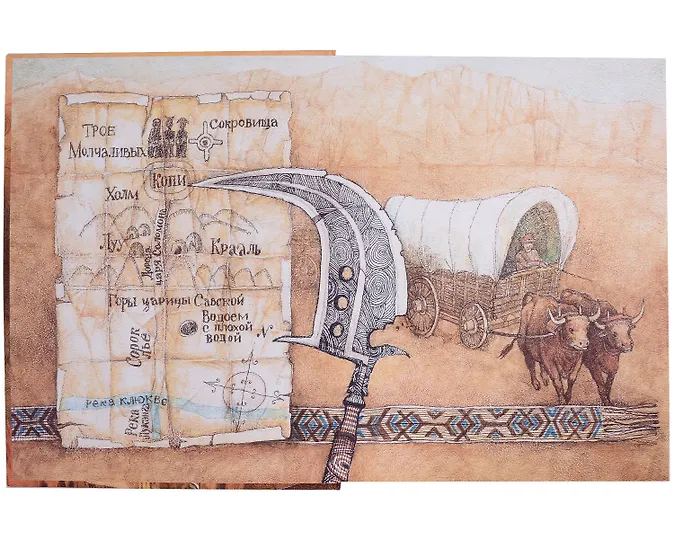 Трое
Молчаливых
Сокровища
Копи
Холм
Луу
Крааль
Дорога
царя Соломона
Горы царицы Савской
Водоем
с плохой
водой
N
Сорок
лье
река
Река